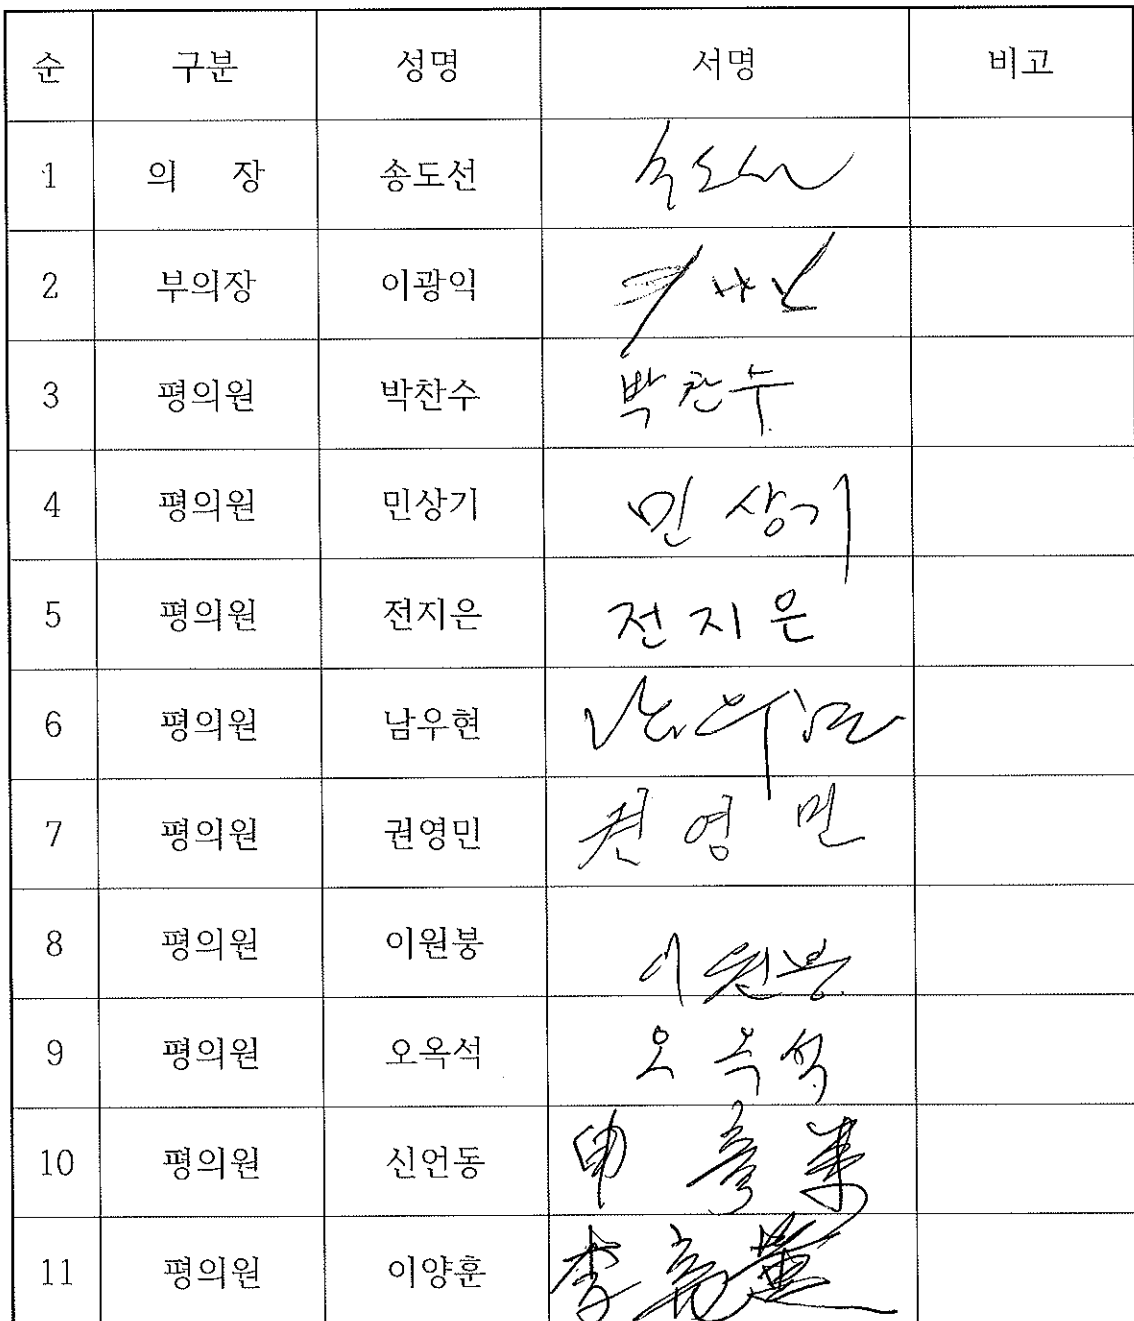 순 구분 성명 서명 비고
1 의 장 송도선
2 부의장 이광익
3 평의원 박찬수 박찬수
4 평의원 민상기 민상기
5 평의원 전지은 전지은
6 평의원 남우현 남우현
7 평의원 권영민 권영민
8 평의원 이원붕 이원붕
9 평의원 오옥석 오옥석
10 평의원 신언동
11 평의원 이양훈